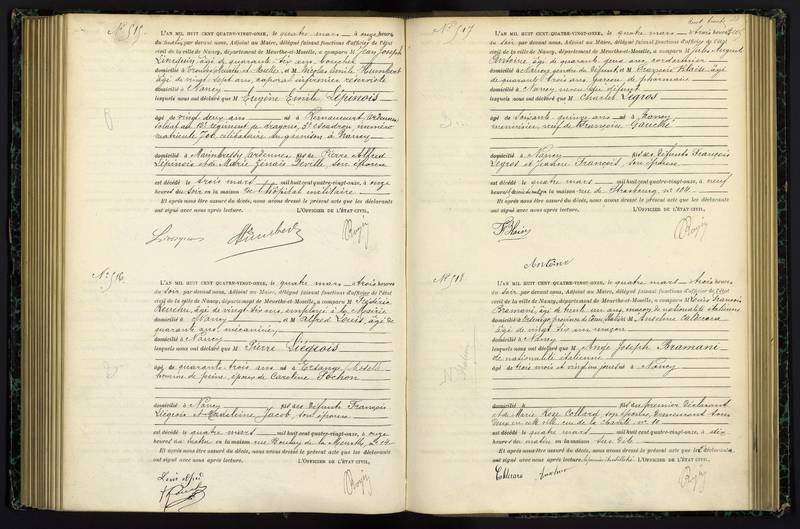 N° 515
L'AN MIL HUIT CENT QUATRE-VINGT-ONZE, le quatre mars à onze heures
du matin, par devant nous, Adjoint au Maire, délégué faisant fonctions d'officier de l'état
civil de la ville de Nancy, département de Meurthe-et-Moselle, a comparu M Jean Joseph
âgé de quarante six ans boucher
domicilié à et M Nicolas Emile Humbert
âgé de vingt sept ans, caporal infirmier
domicilié à Nancy
lesquels nous ont déclaré que M Eugène Emile Lépinois
âgé de vingt deux ans né à Remaucourt Ardennes
soldat au 12e régiment de dragons, 5e escadron, numéro
matricule 706, célibataire en garnison à Nancy
domicilié à Mainbressy Ardennes fils de Pierre Alfred
Lépinois et de Marie Zénaïs Deville, son épouse
est décédé le trois mars mil huit cent quatre-vingt-onze, à onze
heures du soir en la maison de l'hôpital militaire
Et après nous être assuré du décès, nous avons dressé le présent acte que les déclarants
ont signé avec nous après lecture. L'OFFICIER DE L'ÉTAT CIVIL,
Humbert
N° 516
L'AN MIL HUIT CENT QUATRE-VINGT-ONZE, le quatre mars à trois heures
du soir, par devant nous, Adjoint au Maire, délégué faisant fonctions d'officier de l'état
civil de la ville de Nancy, département de Meurthe-et-Moselle, a comparu M Frédéric
âgé de vingt six ans, employé à la
domicilié à Nancy et M Alfred Louis, âgé de
quarante ans mécanicien
domicilié à Nancy
lesquels nous ont déclaré que M Pierre Liegeois
âgé de quarante trois ans né à Ersange Moselle
homme de peine, époux de Caroline Sochon
domicilié à Nancy fils des défunts François
Liegeois et Madeleine Jacob, son épouse
est décédé le quatre mars mil huit cent quatre-vingt-onze, à onze
heures du matin en la maison rue Boulay de la Meurthe,
Et après nous être assuré du décès, nous avons dressé le présent acte que les déclarants
ont signé avec nous après lecture. L'OFFICIER DE L'ÉTAT CIVIL,
Louis Alfred
N° 517
L'AN MIL HUIT CENT QUATRE-VINGT-ONZE, le quatre mars à trois heures
du soir par devant nous, Adjoint au Maire, délégué faisant fonctions d'officier de l'état
civil de la ville de Nancy, département de Meurthe-et-Moselle, a comparu M Jules August
Antoine âgé de quarante cinq ans, cordonnier
domicilié à Nancy gendre du défunt et M François âgé
de quarante trois ans garçon de pharmacie
domicilié à Nancy neveu du défunt
lesquels nous ont déclaré que M Charles Legros
âgé de soixante quinze ans né à Nancy
menuisier, veuf de Françoise Gauché
domicilié à Nancy fils des défunts François
Legros et Jeanne François, son épouse
est décédé le quatre mars mil huit cent quatre-vingt-onze, à neuf
heures du matin en la maison rue de Strasbourg, n° 104
Et après nous être assuré du décès, nous avons dressé le présent acte que les déclarants
ont signé avec nous après lecture. L'OFFICIER DE L'ÉTAT CIVIL,
Antoine
N° 518
L'AN MIL HUIT CENT QUATRE-VINGT-ONZE, le quatre mars à trois heures
du soir par devant nous, Adjoint au Maire, délégué faisant fonctions d'officier de l'état
civil de la ville de Nancy, département de Meurthe-et-Moselle, a comparu M Louis François
Aramani, âgé de trente un ans, maçon de nationalité italienne
domicilié à et M Anselme Calderara
âgé de vingt six ans maçon
domicilié à Nancy
lesquels nous ont déclaré que M Ange Joseph Aramani
de nationalité italienne
âgé de trois mois et vingt un jours né à Nancy
domicilié à fils du premier déclarant
et de Marie Rose Collard son épouse, demeurant tous
deux en cette ville rue de la Charité n° 10
est décédé le quatre mars mil huit cent quatre-vingt-onze, à dix
heures du matin en la maison sus dite
Et après nous être assuré du décès, nous avons dressé le présent acte que les déclarants
ont signé avec nous après lecture. L'OFFICIER DE L'ÉTAT CIVIL,
Calderara